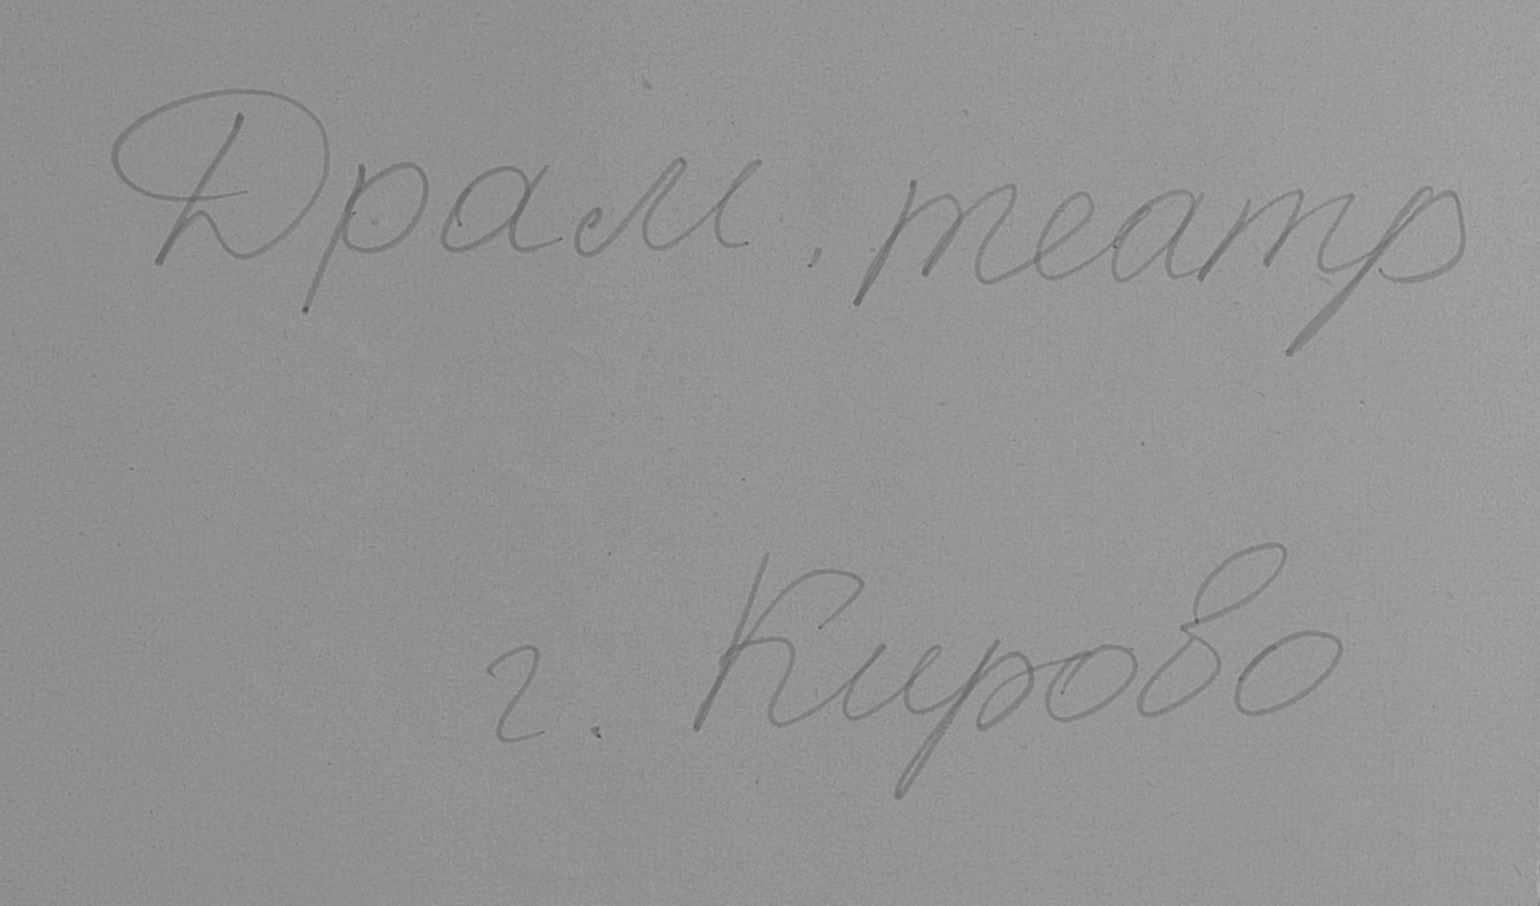 Драм. театр
г. Кирово